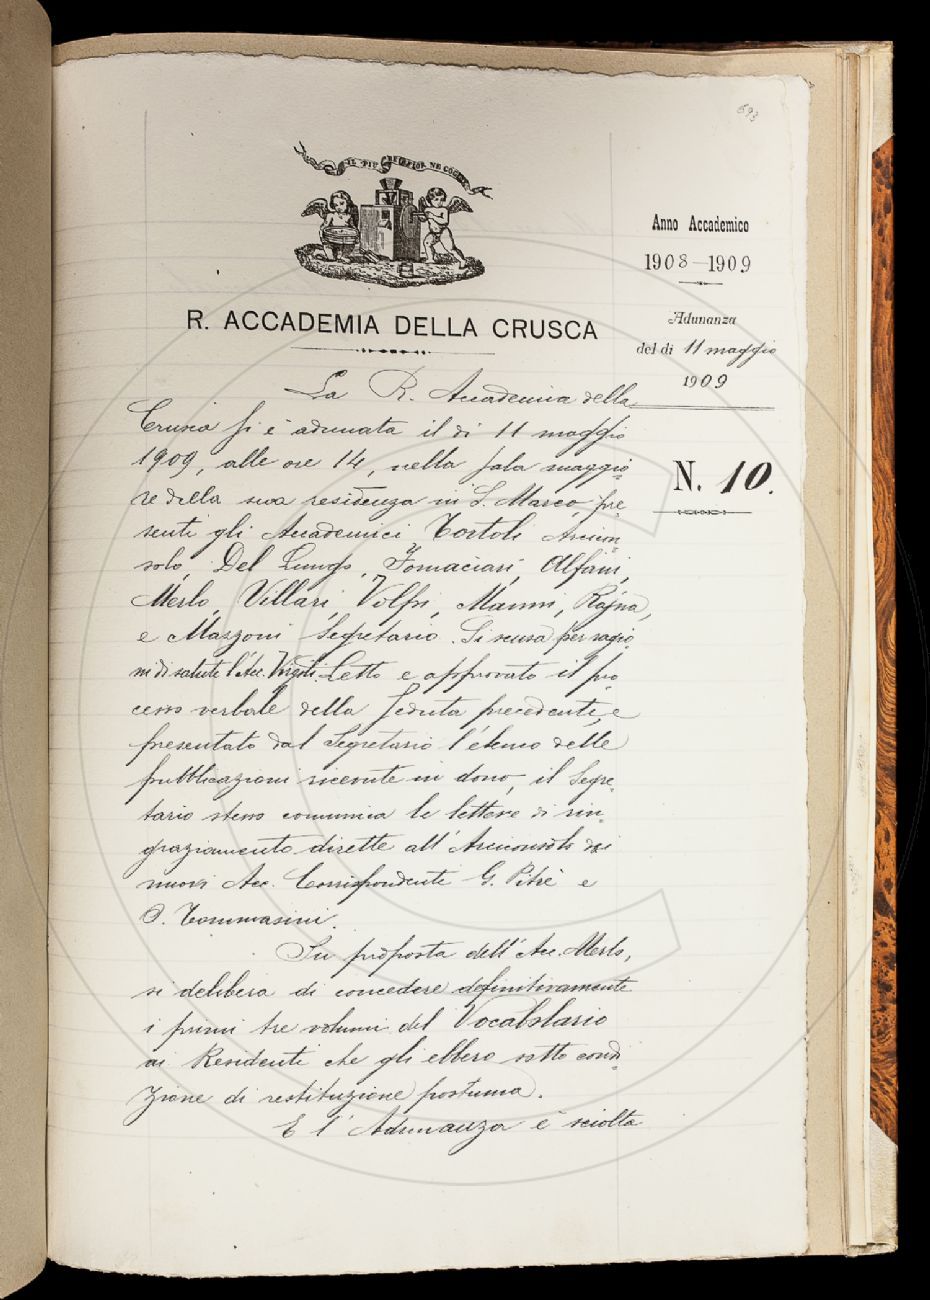 693
IL PIÙ BEL FIOR NE COGLIE
Anno Accademico
1908-1909
R. ACCADEMIA DELLA CRUSCA
Adunanza
del dì 11 maggio
1909
N. 10.
La R. Accademia della
Crusca si è adunata il dì 11 maggio
1909, alle ore 14, nella sala maggio-
re della sua residenza in S. Marco, pre-
senti gli Accademici Tortoli Arcicon-
solo, Del Lungo, Fornaciari, Alfani,
Merlo, Villari, Volpi, Manni, Rajna,
e Mazzoni Segretario. Si scusa per ragio-
ni di salute l'Acc. Vigoli. Letto e approvato il pro
cesso verbale della seduta precedente, e
presentato dal Segretario l'elenco delle
pubblicazioni ricevute in dono, il Segre-
tario stesso comunica le lettere di rin-
graziamento dirette all'Arciconsolo dai
nuovi Acc. Corrispondente G. Pitrè e
O. Tommasini.
Su proposta dell'Acc. Merlo,
si delibera di concedere definitivamente
i primi tre volumi del Vocabolario
ai Residenti che gli ebbero sotto condi-
zione di restituzione postuma.
E l'Adunanza è sciolta